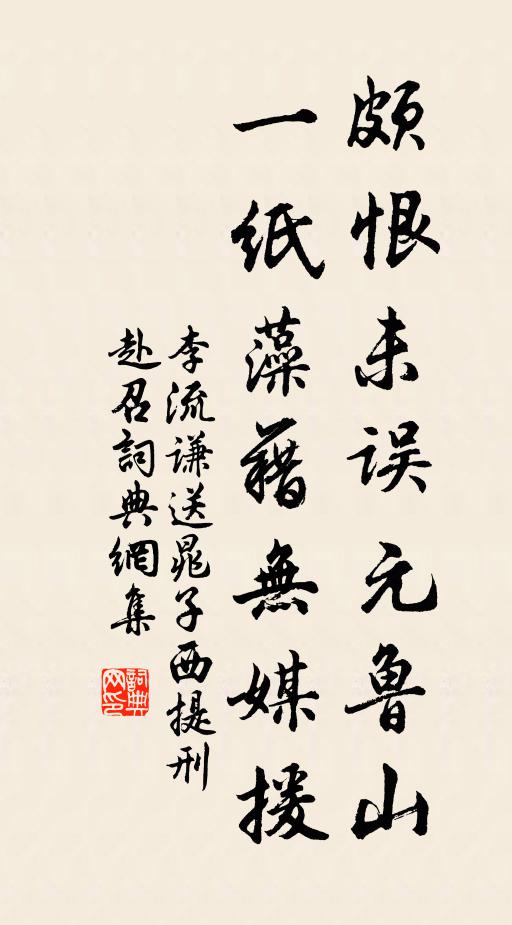 頗恨未误元鲁山
一纸藻藉無媒援
李流谦送晁子西提刑
赴召詞典網集
詞典网印